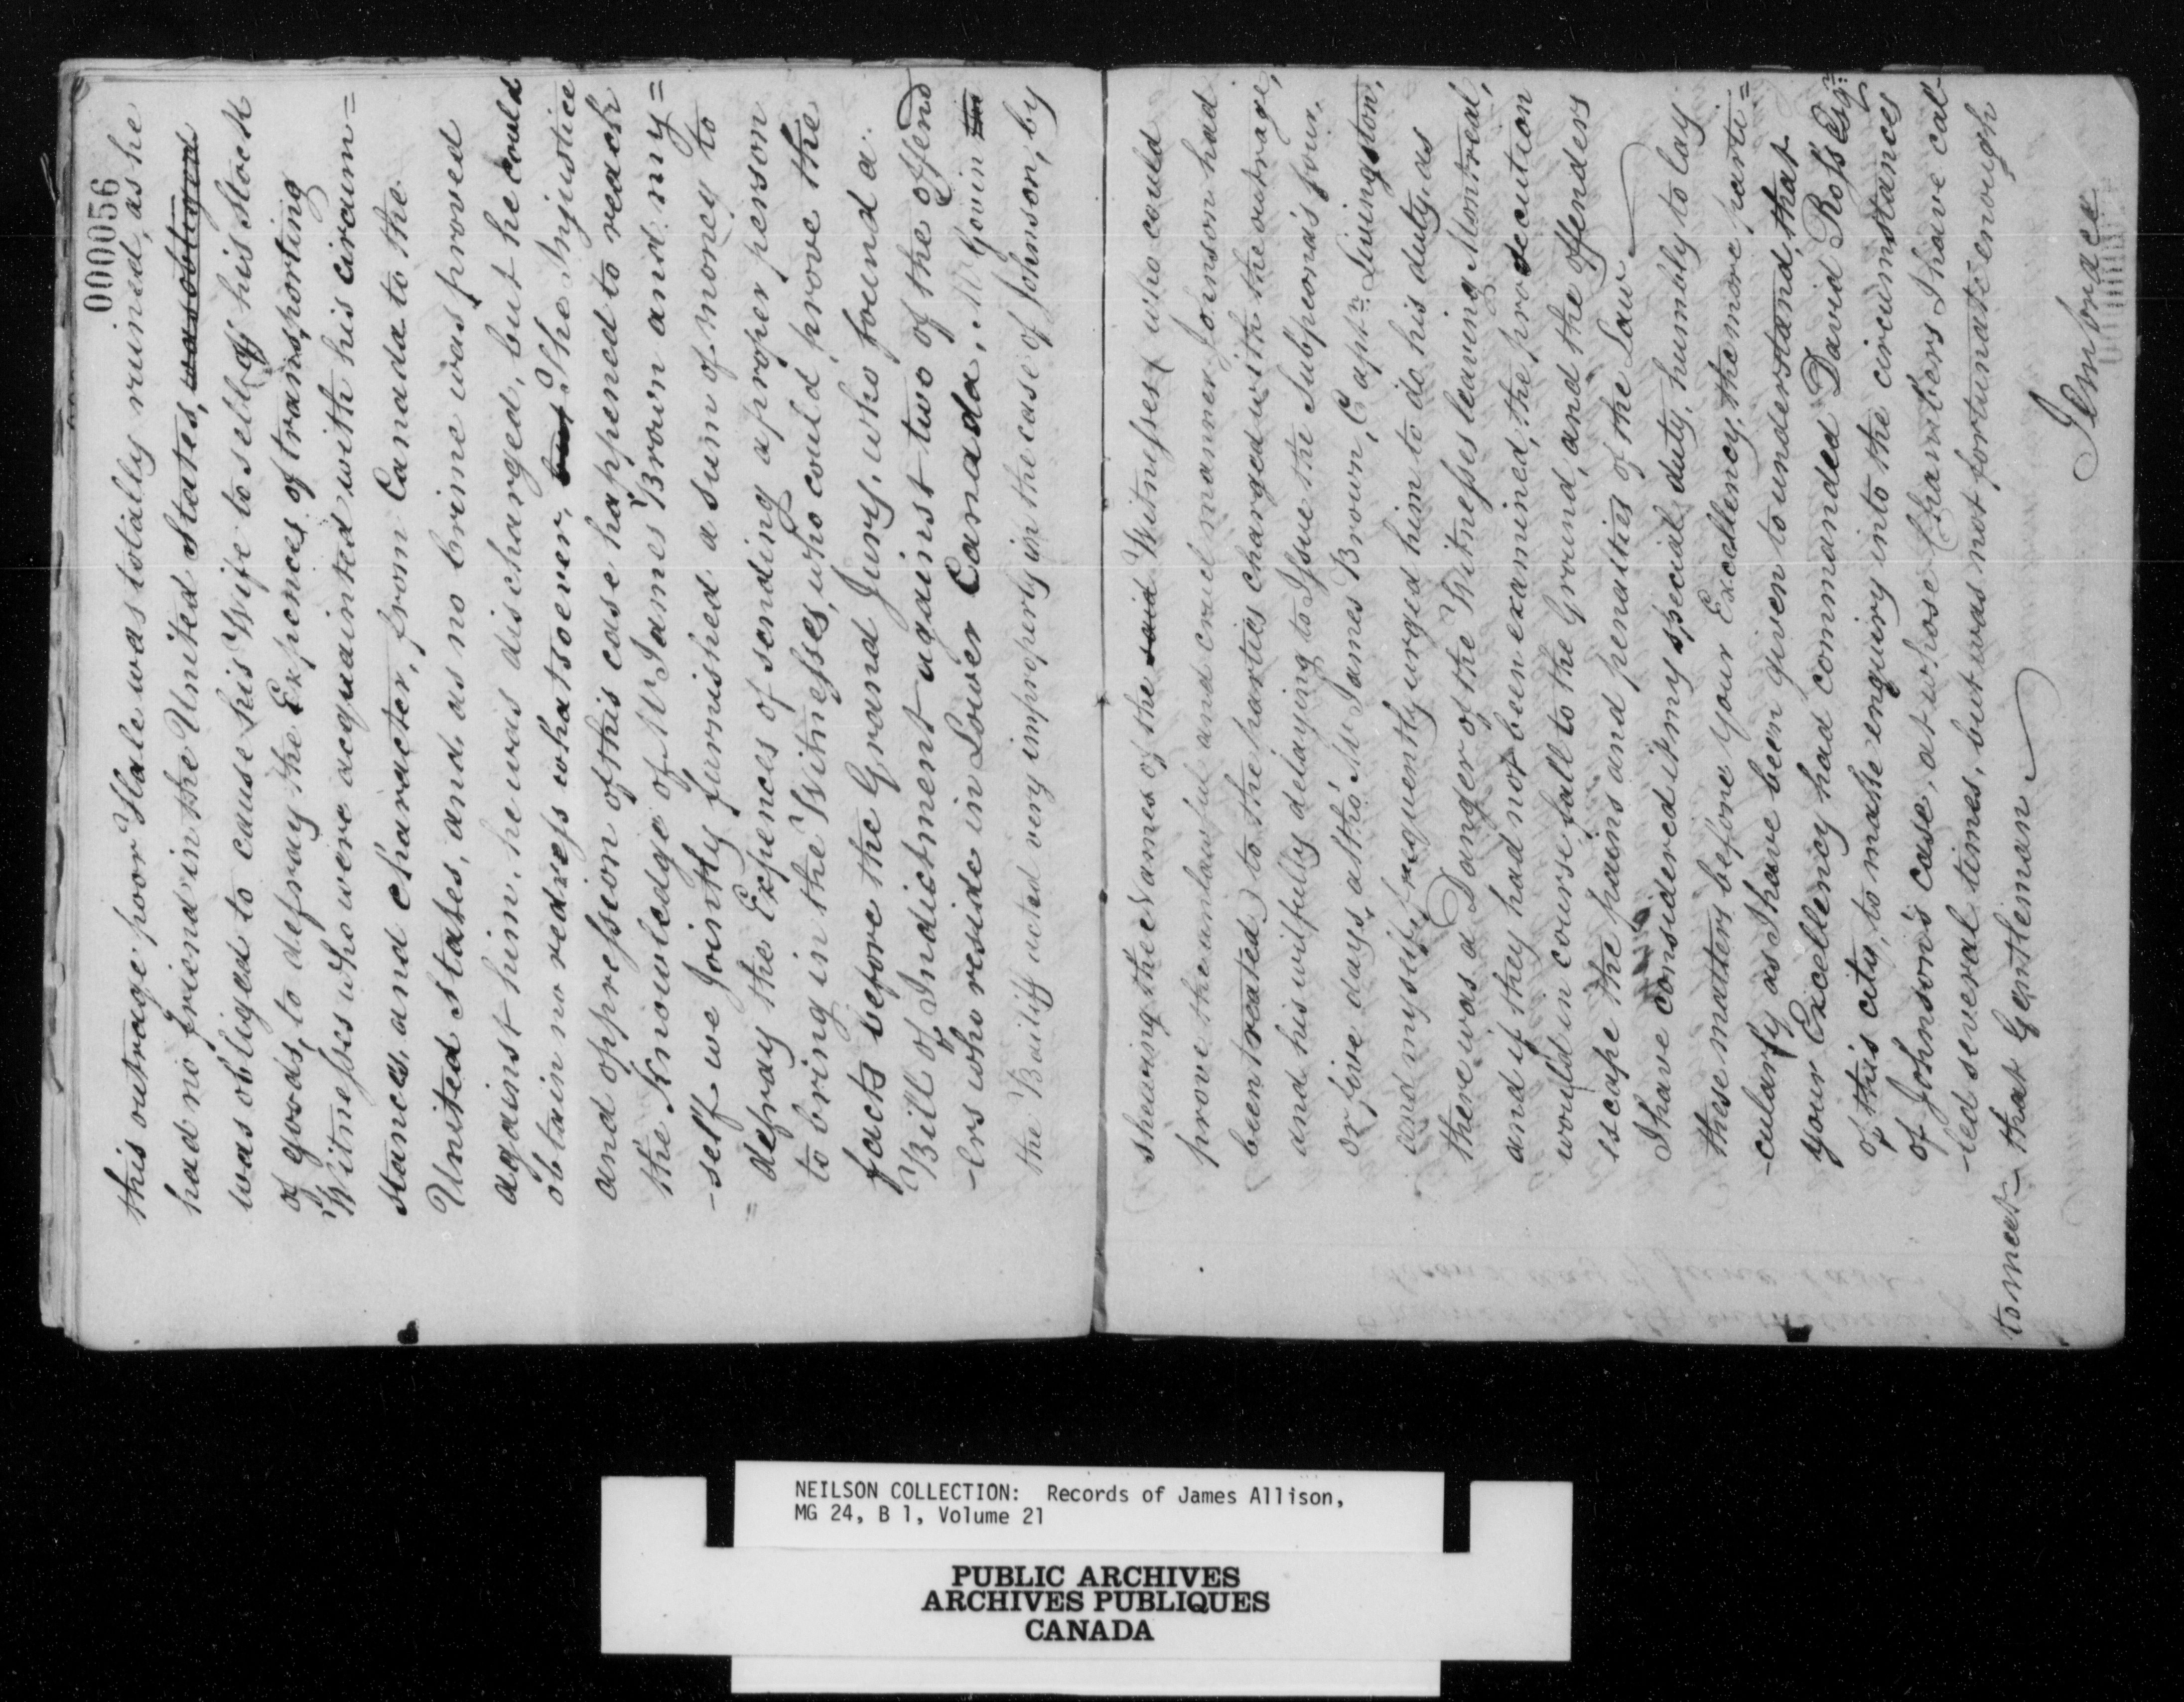 000056
this outrage poor Hale was totally ruined, as he
had no friend in the United States, was obliged
was obliged to cause his Wife to sell off his Stock
of goods, to defray the Expences of transporting
Witnesses who were acquainted with his circum=
stances, and character, from Canada to the
United States, and, as no Crime was proved
against him, he was discharged, but he could
obtain no redress whatsoever, but The Injustice
and oppression of this case happened to reach
the Knowledge of Mr James Brown and my=
-self we Jointly furnished a sum of money to
= defray the Expences of sending a proper person
to bring in the Witnesses, who could prove the
facts before the Grand Jury, who found a
Bill of Indictment against two of the offend
-ers who reside in Lower Canada, Mr Govin
the Bailiff acted very improperly in the case of Johnson, by
shewing the Names of the said Witnesses (who could
prove the unlawful and cruel manner Johnson had
been treated) to the parties charged with the outrage,
and his wilfully delaying to Issue the Subpoena's four,
or five days, altho' Mr James Brown, Captn: Livingston,
and myself frequently urged him to do his duty, as
there was a Danger of the Witnesses leaving Montreal,
and if they had not been examined, the prosecution
would in course fall to the Ground, and the offenders
escape the pains and penalties of the Law
I have considered it my special duty, humbly to lay
these matters before your Excellency, the more parti=
-cularly as I have been given to understand, that
your Excellency had commanded David Ross Esqr:
of this city, to make enquiry into the circumstances
of Johnson's case, at whose Chambers I have cal-
-led several times, but was not fortunate enough
to meet that Gentleman
I embrace
NEILSON COLLECTION: Records of James Allison,
MG 24, B 1, Volume 21
PUBLIC ARCHIVES
ARCHIVES PUBLIQUES
CANADA